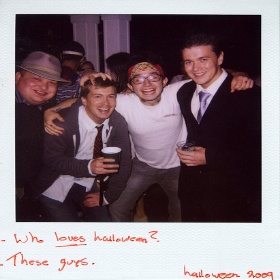 - Who loves halloween?
- These guys.
halloween 2009